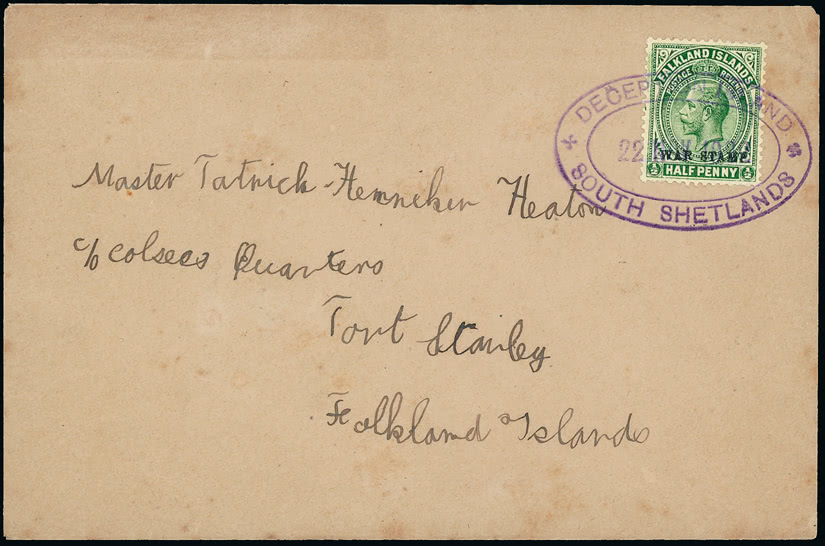 FALKLAND ISLANDS
POSTAGE REVENUE
WAR STAMP
½ HALF PENNY ½
DECEP AND
22
SOUTH SHETLANDS
Master Patrick-Henniker Heaton
c/o Colsecs Quarters
Port Stanley
Falkland Islands